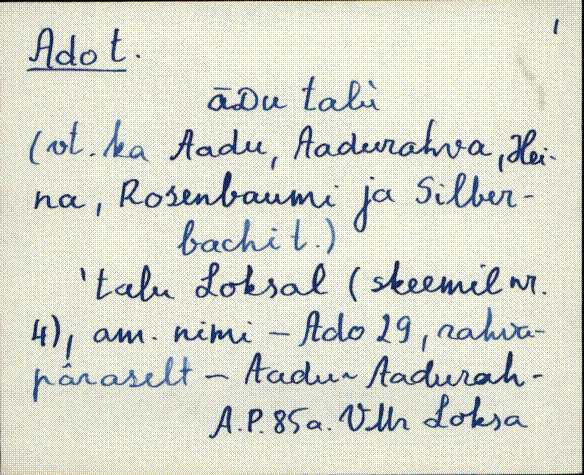 1
Ado t.
āDu talù
(vt. ka Aadu, Aadurahva, Hei-
na, Rosenbaumi ja Silber-
bachi t.)
'talu Loksal (skeemil nr.
4), am. nimi – Ado 29, rahva-
päraselt – Aadu ~ Aadurah-
A.P. 85a. Vllr Loksa